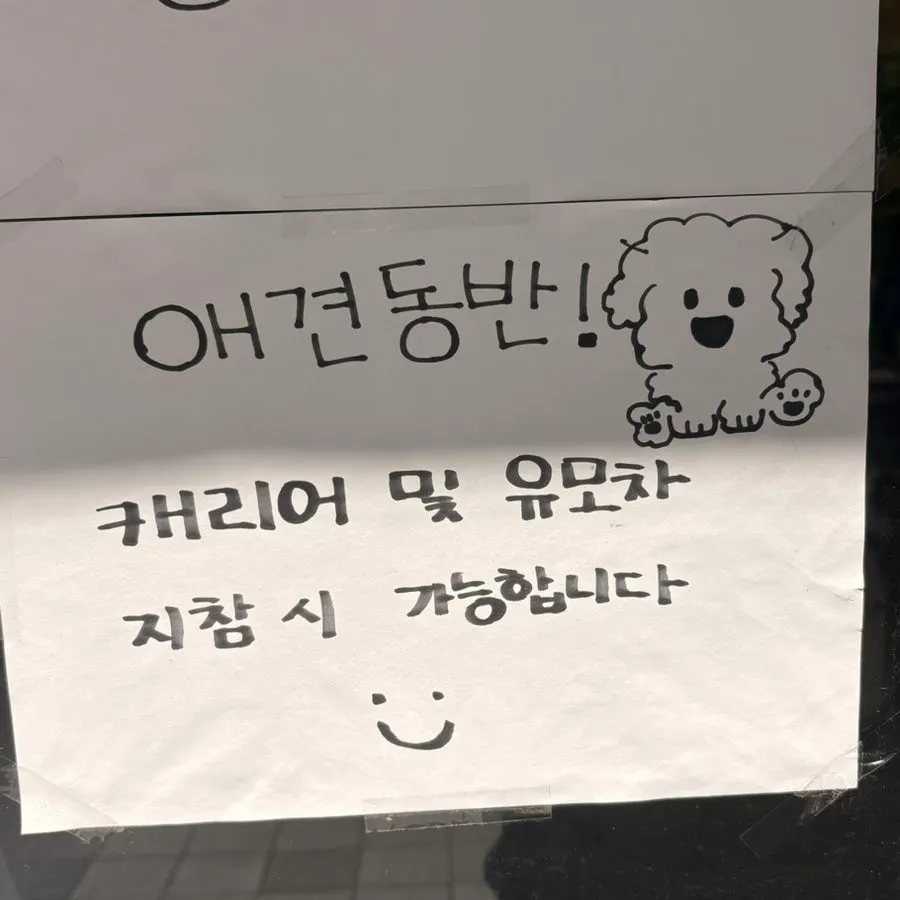 애견동반!
캐리어 및 유모차
지참 시 가능합니다